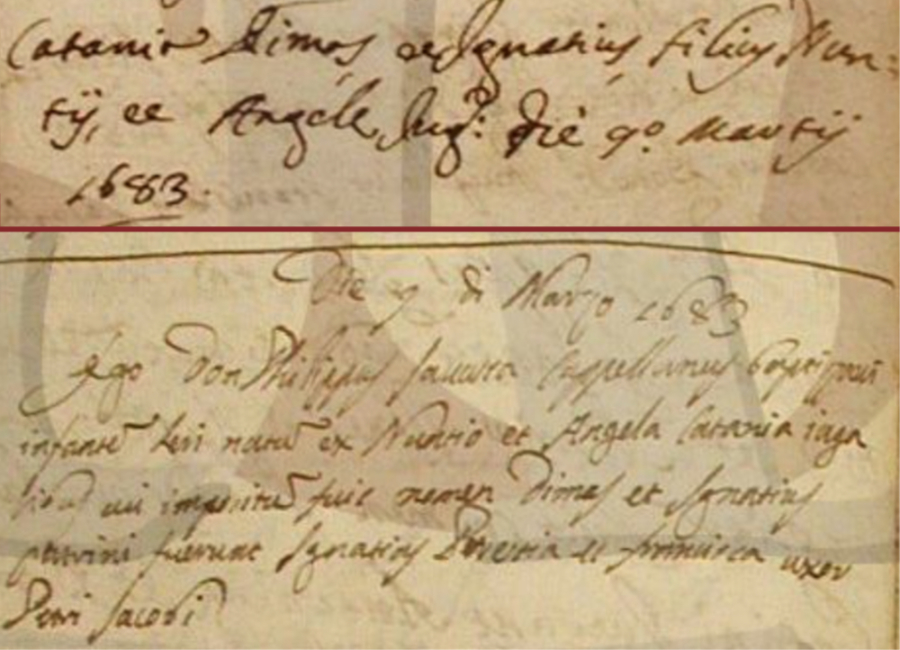 Catania Dimas et Ignatius filius Nun-
tij, et Angelę Iug: die 9º Martij
1683.
Die 9 di Marzo 1683
Ego Don Philippus Cappellanus baptizavi
infantē heri natū ex Nuntio et Angela Catania iuga
cui impositū fuit nomen Dimas et Ignatius
patrini fuerunt Ignatius et uxor
Petri Iacobi